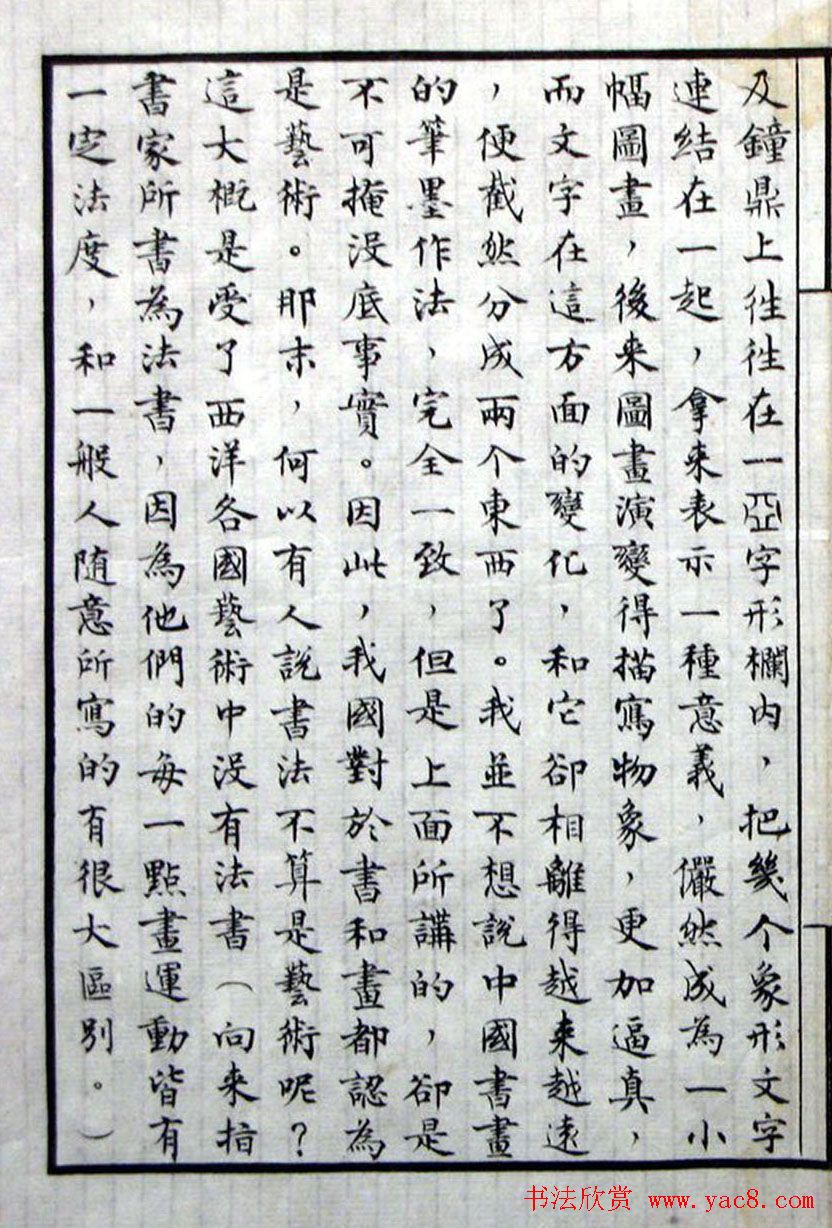 及鐘鼎上往往在一亞字形欄內，把幾个象形文字
連結在一起，拿来表示一種意義，儼然成為一小
幅圖畫，後来圖畫演變得描寫物象，更加逼真，
而文字在這方面的變化，和它卻相離得越来越遠
，便截然分成兩个東西了。我並不想說中國書畫
的筆墨作法，完全一致，但是上面所講的，卻是
不可掩沒底事實。因此，我國對於書和畫都認為
是藝術。那末，何以有人說書法不算是藝術呢？
這大概是受了西洋各國藝術中沒有法書（向来指
書家所書為法書，因為他們的每一點畫運動皆有
一定法度，和一般人随意所寫的有很大區别。）
书法欣赏 www.yac8.com